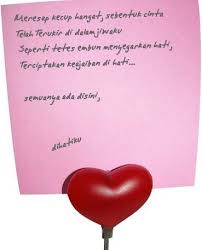 Meresap kecup hangat, sebentuk cinta
Telah Terukir di dalam jiwaku
Seperti tetes embun menyegarkan hati,
Terciptakan keajaiban di hati...
semuanya ada disini,
dihatiku